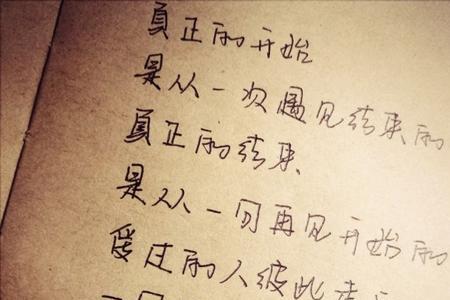 真正的开始
是从一次遇见结束的
真正的结束
是从一句再见开始的
爱过的人彼此
一